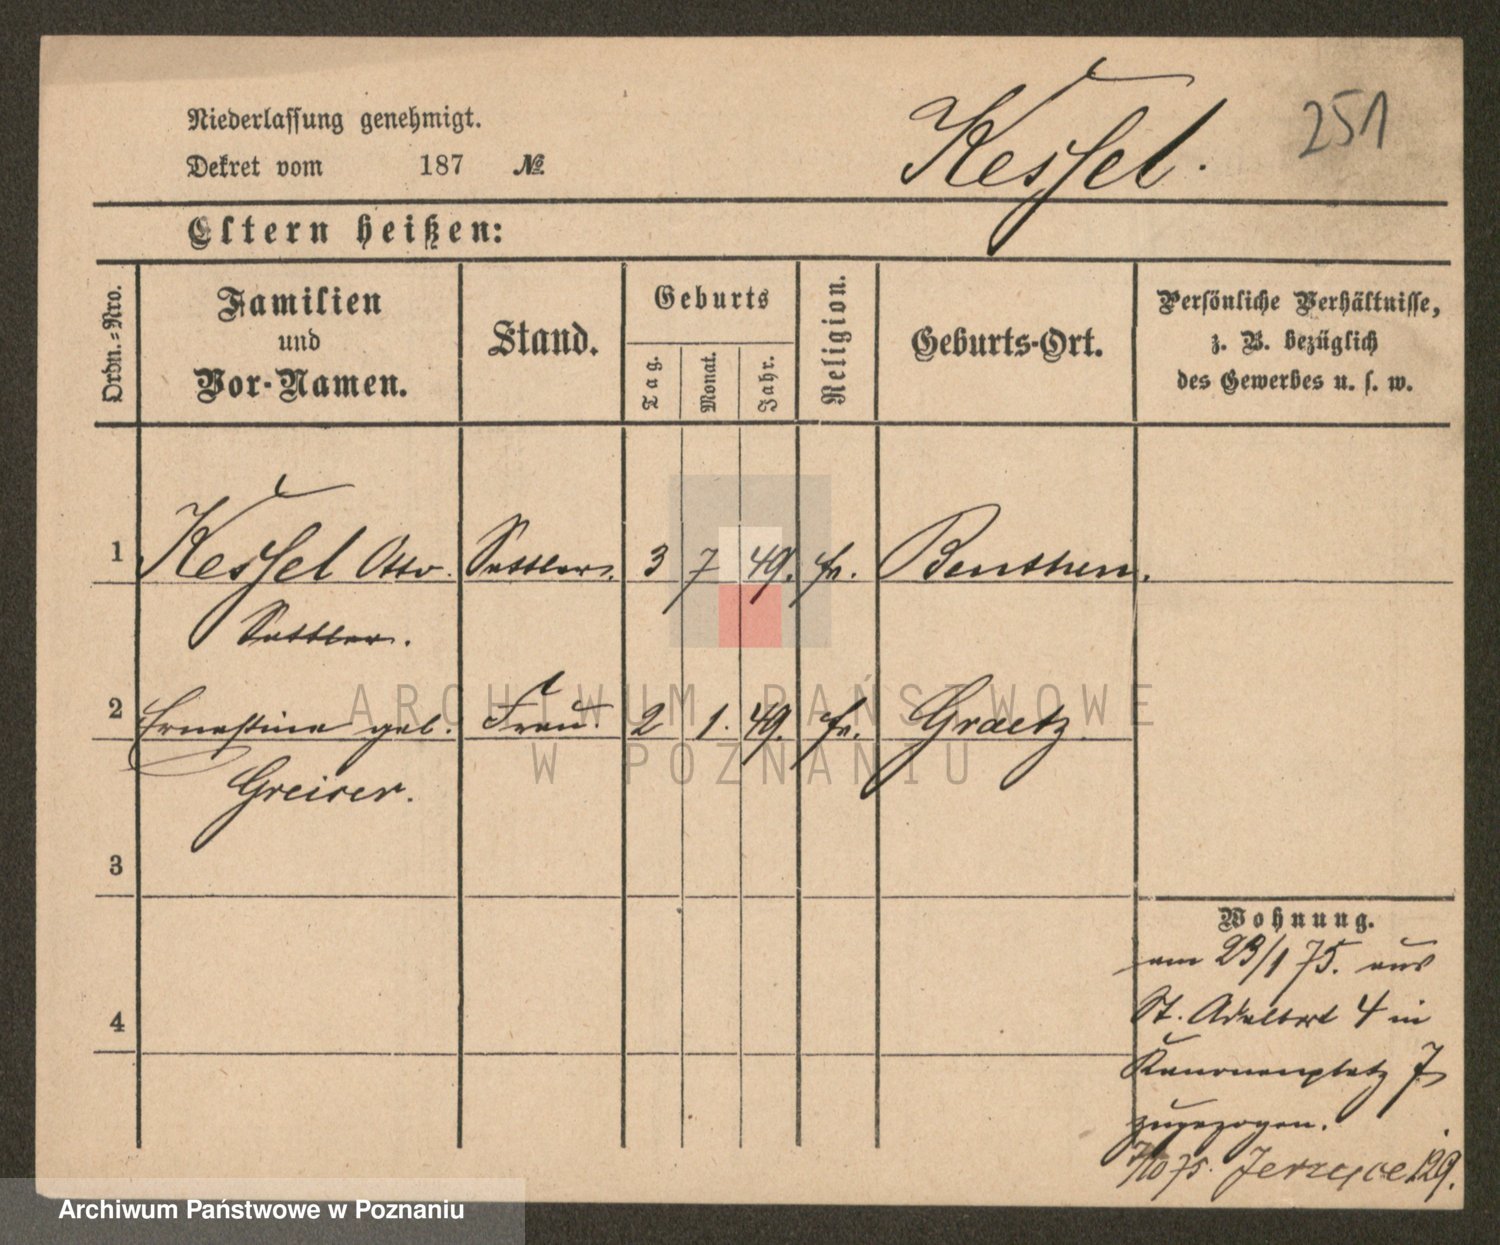 Niederlassung genehmigt.
Dekret vom 187 №
Kessel.
251
Eltern heißen:
Ordn.-Nro.
Familien
und
Vor-Namen.
Stand.
Geburts
Tag.
Monat.
Jahr.
Religion.
Geburts-Ort.
Persönliche Verhältnisse,
z. B. bezüglich
des Gewerbes u. s. w.
1 Kessel Otto. Sattler. 3 7 49. Benthen.
Sattler.
2 Ernestine geb. Frau. 2 1. 49. Graetz
Greiser.
3
4
Wohnung.
am 23/1 75. aus
St. Adalbert 4 in
Kanonenplatz 7
zugezogen.
7/10 75. 129.
ARCHIWUM PAŃSTWOWE
W POZNANIU
Archiwum Państwowe w Poznaniu